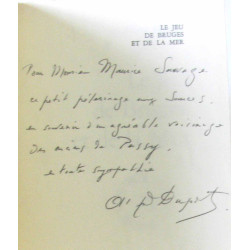 LE JEU
DE BRUGES
ET DE LA MER
Pour Monsieur Maurice Sauvage
ce petit pèlerinage aux Sources
en souvenir d'un agréable voisinage
des de Passy
en toute sympathie